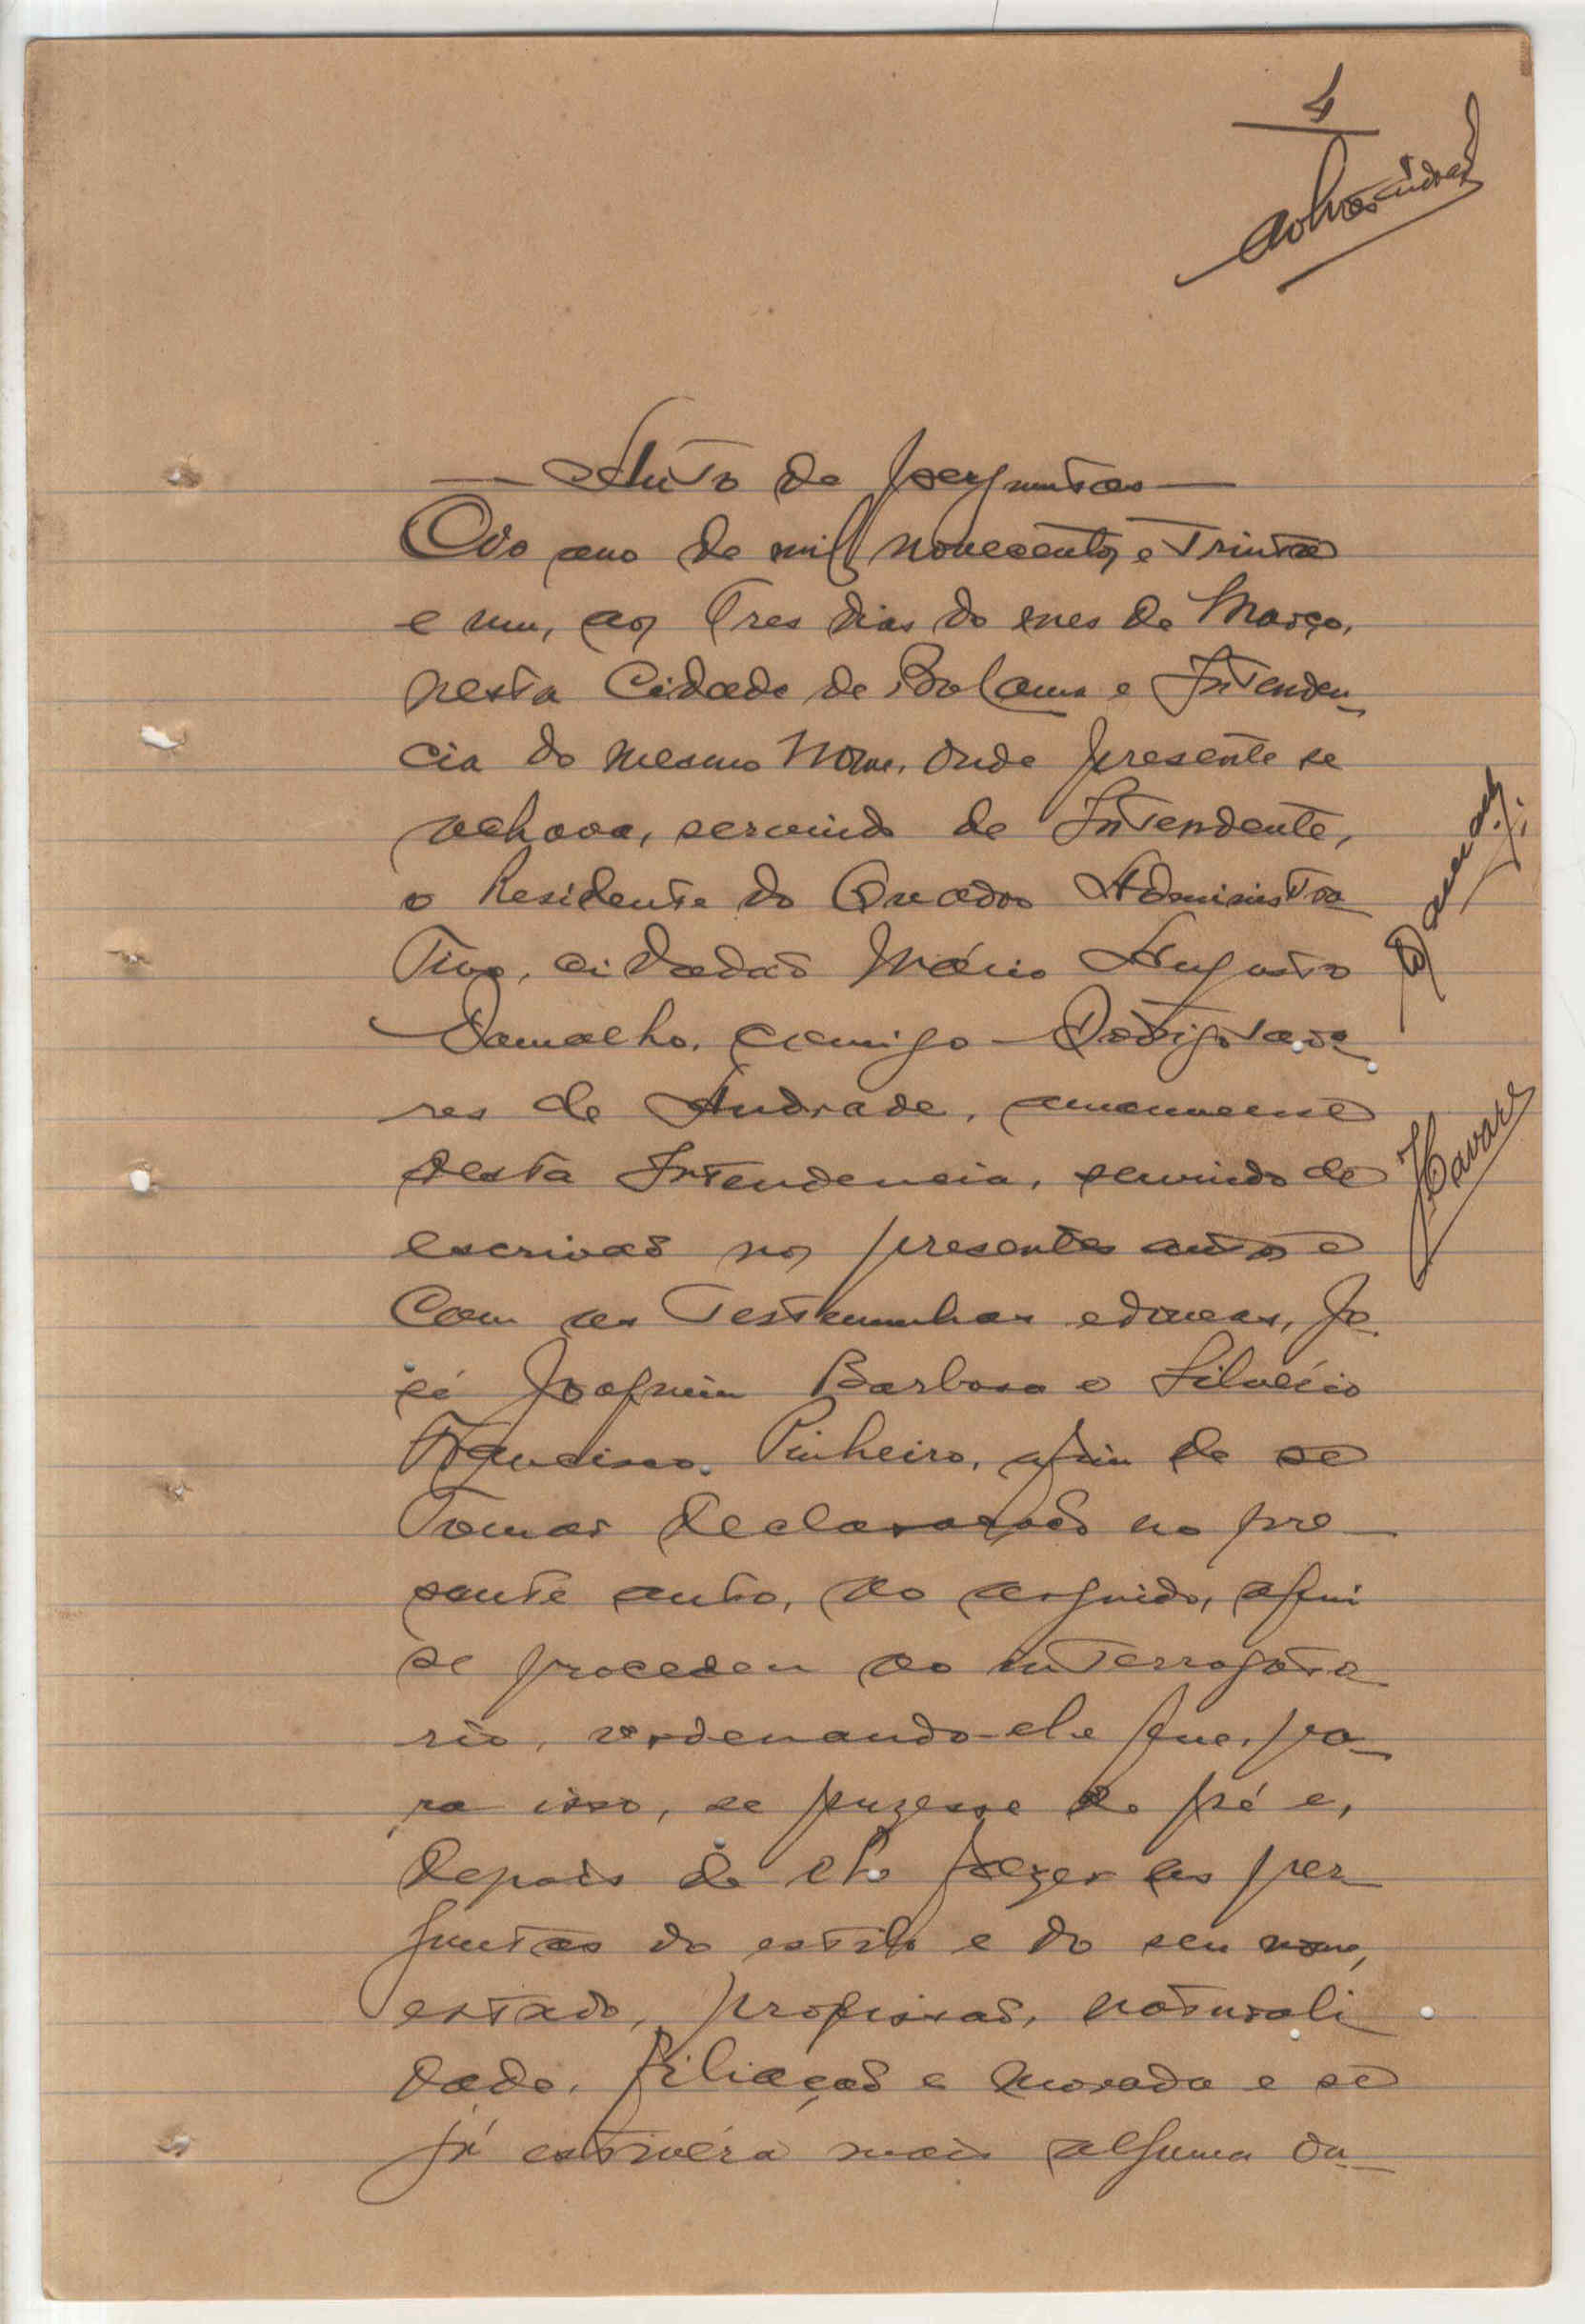 4
— Auto de perguntas —
Ao ano de mil novecentos e trinta
e um, aos tres dias do mes de Março,
nesta Cidade de Bolama e Intenden-
cia do mesmo nome, onde presente se
achava, servindo de Intendente,
o Residente do Quadro Administra-
tivo, cidadão Mário Augusto
Damalho, comigo Rodrigo Tava-
res de Andrade, amanuense
desta Intendencia, servindo de
escrivão nos presentes autos e
com as testemunhas edoneas, Jo-
sé Joaquim Barbosa e Silvério
Francisco Pinheiro, afim de se
tomar declarações no pre-
sente auto, ao arguido, afim
se procedeu ao interrogato-
rio, ordenando-el-e que, pa-
ra isso, se puzesse de pé e,
depois de lhe fazer as per-
guntas do estilo e do seu nome,
estado, profissão, naturali
dade, filiação e morada e se
já estivéra mais alguma ou-
Tavares